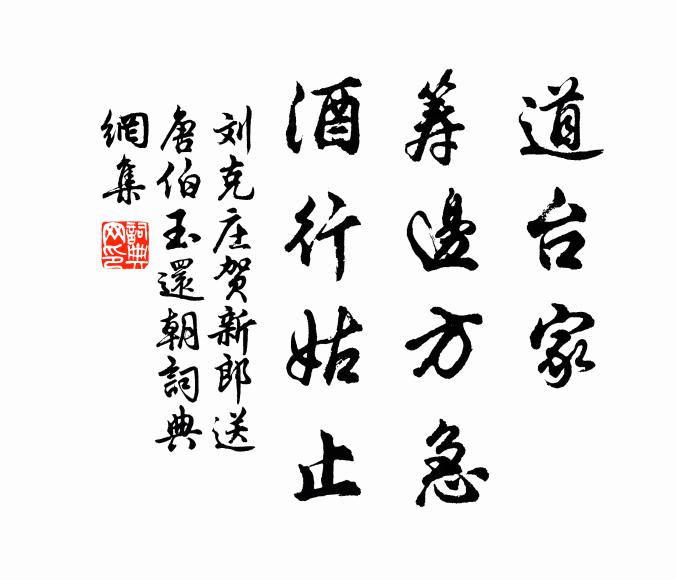 道台家
筹邊方急
酒行姑止
刘克庄贺新郎送
唐伯玉還朝詞典
網集
詞典網印